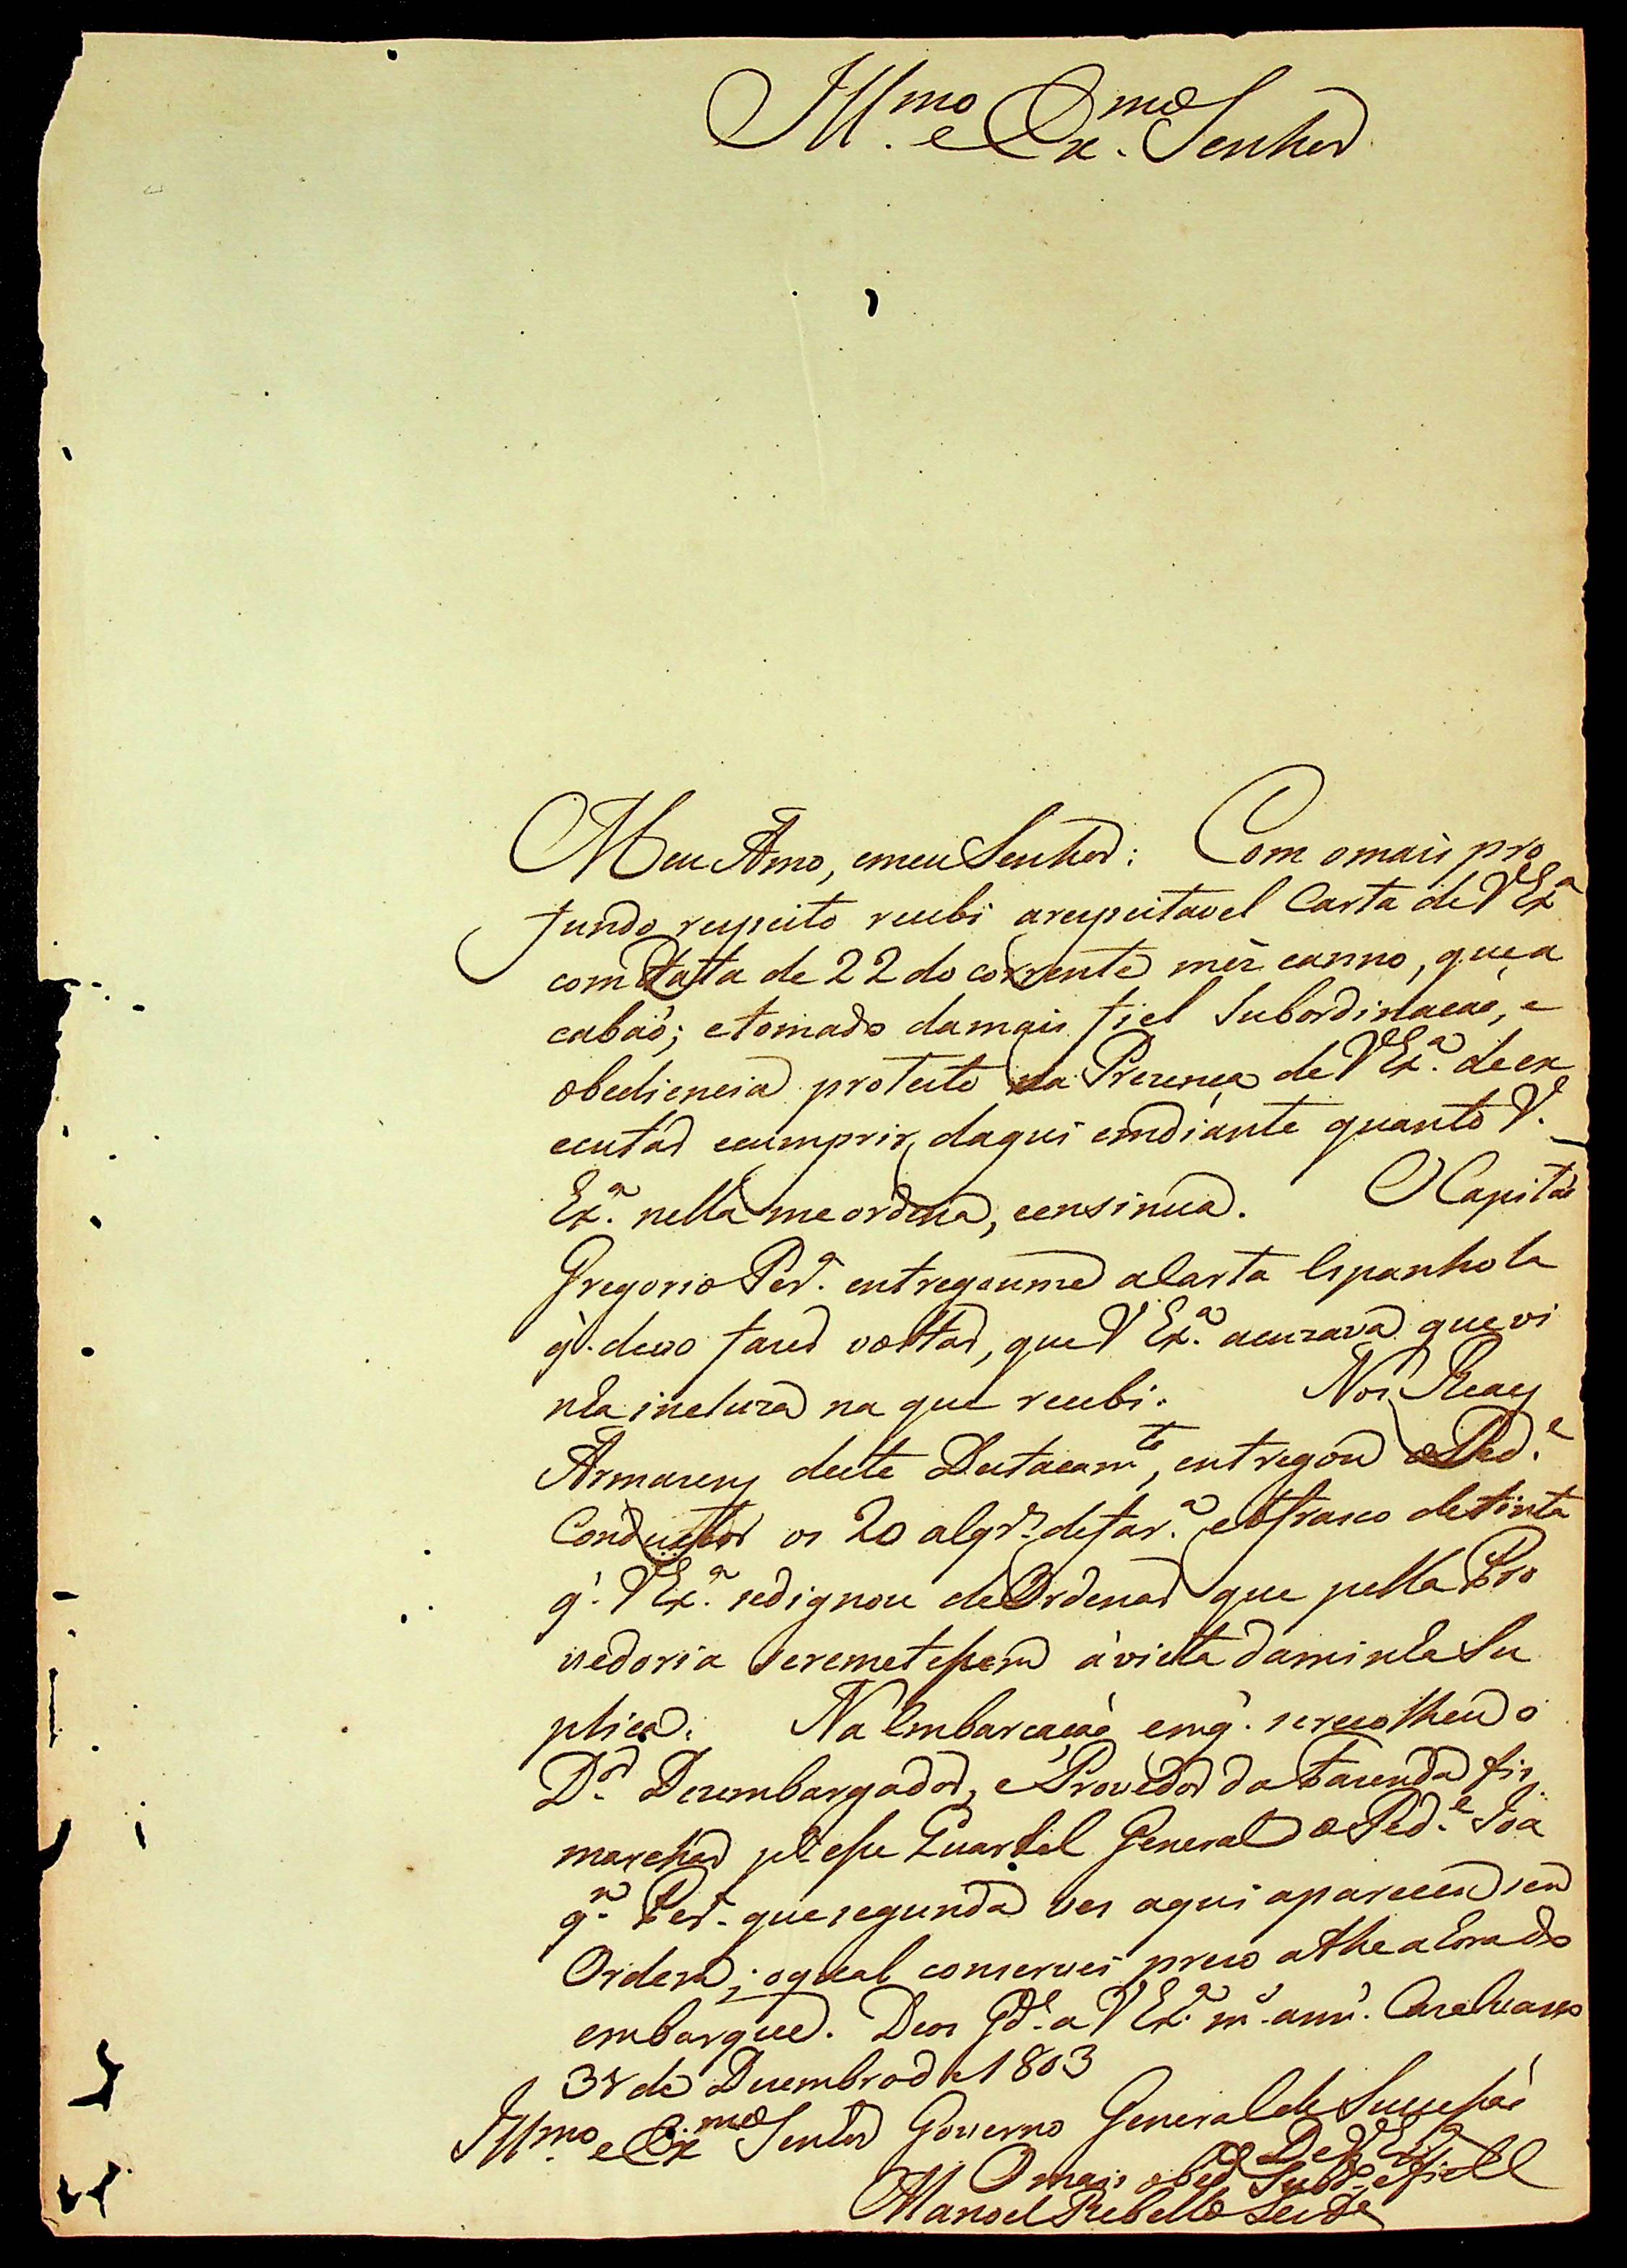 Ill.mo e Ex.mo Senhor
Meu Amo, emeu Senhor: Com omais pro
fundo respeito recebi arespeitavel Carta de VEx.a
com data de 22 do corrente mês eanno, que a
cabaõ; etomado damais fiel Subordinaçaõ, e
obediencia protesto na Prezença de VEx.a de ex
ecutar ecumprir daqui emdiante quanto V.
Ex.a nella me ordena, eensinua. O Capitaõ
Gregorio Per.a entregoume aCarta Espanhola
q. devo fazer voltar, que V Ex.a acuzava que vi
nha incluza na que recebi. Nos Reaes
Armazens deste Destacam.to, entregou o Red.e
Conductor os 20 alqr.es de far.a, eo frasco detinta
q. VEx.a sedignou de Ordenar que pella Pro
vedoria seremetessem ávista daminha Su
plica. Na Embarcaçaõ emq. serecolheu o
D.or Dezembargador, e Provedor da Fazenda fis
marchar p.a esse Quartel General o Red.e Joa
q.m Per.a que segunda ves aqui apareceu sem
Ordem; oqual conservei prezo athe ahora do
embarque. Deos G.de a VEx.a m.s ann.s
31 de Dezembro de 1803
Ill.mo e Ex.mo Senhor Governo General de Sucessaõ
De V Ex.a
O mais obed.e Subd.o, efiel
Manoel Rebello Leite